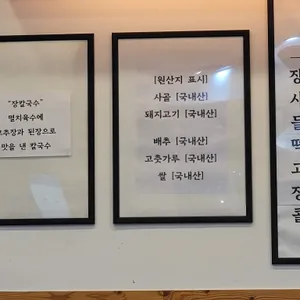 "장칼국수"
멸치육수에
고추장과 된장으로
맛을 낸 칼국수
[원산지 표시]
사골 [국내산]
돼지고기 [국내산]
배추 [국내산]
고춧가루 [국내산]
쌀 [국내산]